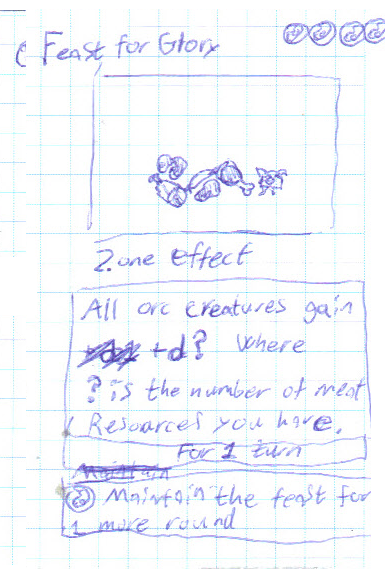 Feast for Glory
Zone effect
All orc creatures gain
+d? Where
? is the number of meat
Resources you have.
For 1 turn
Maintain
Maintain the feast for
1 more round